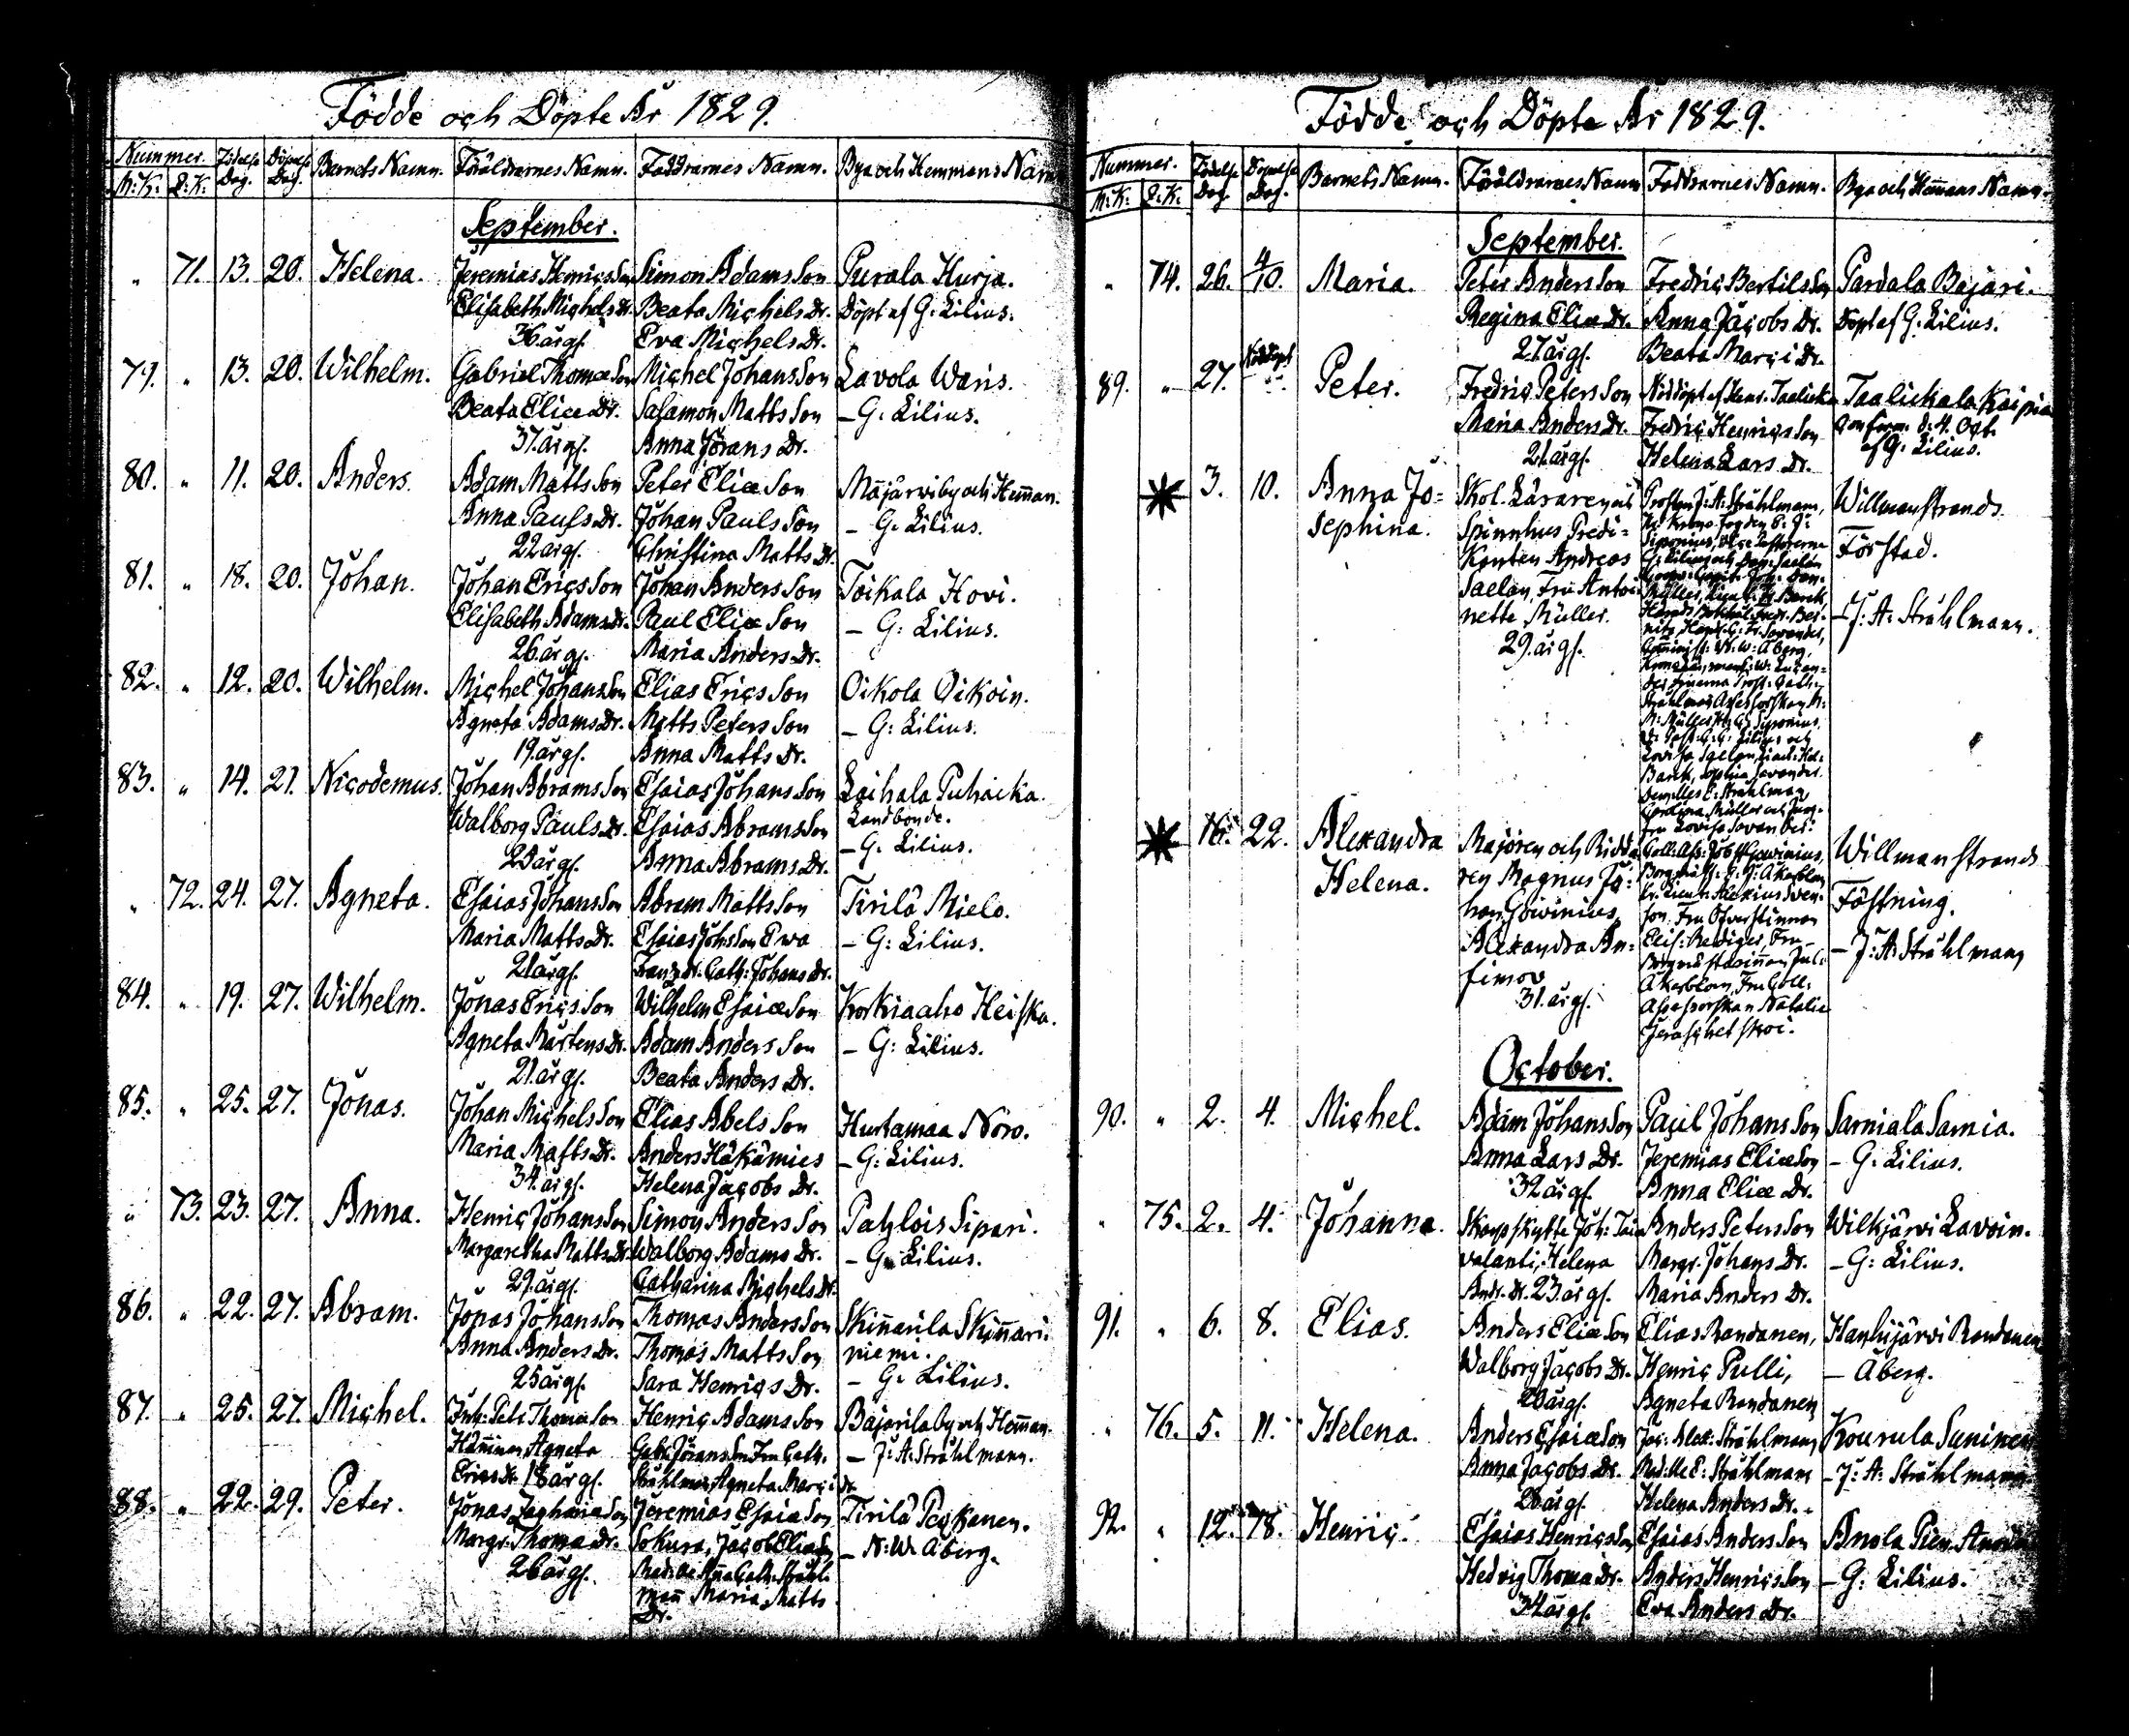 Födde och Döpte År 1829.
Nummer. Födelse Döpelse Barnets Namn. Föräldrarnes Namn. Faddrarnes Namn. Bya och Hemmans Namn
M: K: Q: K: Dag. Dag.
September.
" 71. 13. 20. Helena. Jeremias Henrics Son Simon Adams Son Purala Hurja.
Elisabeth Michels Dr. Beata Michels Dr. Döpt af G: Lilius.
36 år gl. Eva Michels Dr.
79. " 13. 20. Wilhelm. Gabriel Thomæ Son Michel Johans Son Lavola Waris.
Beata Eliæ Dr. Salamon Matts Son – G: Lilius.
37. år gl. Anna Jörans Dr.
80. " 11. 20. Anders. Adam Matts Son Peter Eliæ Son Mäjärvi by och Hemman.
Anna Pauls Dr. Johan Pauls Son – G: Lilius.
22 år gl. Christina Matts Dr.
81. " 18. 20. Johan. Johan Erics Son Johan Anders Son Toikala Hovi.
Elisabeth Adams Dr. Paul Eliæ Son – G: Lilius.
26. år gl. Maria Anders Dr.
82. " 12. 20. Wilhelm. Michel Johans Son Elias Erics Son Oikola Oikoin.
Agneta Adams Dr. Matts Peters Son – G: Lilius.
19. år gl. Anna Matts Dr.
83. " 14. 21. Nicodemus. Johan Abrams Son Esaias Johans Son Laihala Puhaika.
Walborg Pauls Dr. Esaias Abrams Son Landbonde.
23 år gl. Anna Abrams Dr. – G. Lilius.
" 72. 24. 27. Agneta. Esaias Johans Son Abram Matts Son Tirilä Mielo.
Maria Matts Dr. Esaias Johs Son Ewa – G: Lilius.
21 år gl. Franz dr. Cath: Johans Dr.
84. " 19. 27. Wilhelm. Jonas Erics Son Wilhelm Esaiæ Son Korkiaaho Heiska.
Agneta Mårtens Dr. Adam Anders Son – G: Lilius.
21. år gl. Beata Anders Dr.
85. " 25. 27. Jonas. Johan Michels Son Elias Abels Son Hurtamaa Noro.
Maria Matts Dr. Anders Häkämies – G: Lilius.
34. år gl. Helena Jacobs Dr.
" 73. 23. 27. Anna. Henric Johans Son Simon Anders Son Patzlois Sipari.
Margaretha Matts Dr. Walborg Adams Dr. – G. Lilius.
29. år gl. Catharina Michels Dr.
86. " 22. 27. Abram. Jonas Johans Son Thomas Anders Son Skinnarila Skinnari
Anna Anders Dr. Thomas Matts Son niemi.
25 år gl. Sara Henrics Dr. – G. Lilius.
87. " 25. 27. Michel. Inh: Pet: Thomæ Son Henric Adams Son Bajarila by och Hemman.
Agneta Gabr. Jörans Son Fru Cath. – J: A: Stråhlmann.
Erics dr 18 år gl. Stråhlman, Agneta Marci dr.
88. " 22. 29. Peter. Jonas Zachariæ Son Jeremias Esaiæ Son Tirilä Peckanen.
Margr. Thomæ Dr. Sokura, Jacob Eliæ Son – N: W: Åberg.
26 år gl. Mad:lle Anna Cath. Stråhl
mann Maria Matts
Dr.
Födde och Döpte År 1829.
Nummer. Födelse Döpelse Barnets Namn. Föräldrarnes Namn Faddrarnes Namn. Bya och Hemmans Namn.
M: K: Q: K: Dag. Dag.
September.
" 74. 26. 4/10. Maria. Peter Anders Son Fredric Bertils Son Pardala Bajari.
Regina Eliæ Dr. Anna Jacobs Dr. Döpt af G: Lilius.
27 år gl. Beata Marci Dr.
89. " 27. Nöddöpt Peter. Fredric Peters Son Nöddöpt af Henr. Taalickala Kaipia
Maria Anders Dr. Fredric Henrics Son Conferm. d: 4. Oct.
21 år gl. Helena Lars Dr. af G: Lilius.
3. 10. Anna Jo= Skol. Läraren och Prosten J: A: Stråhlmann, Willmanstrands
sephina. Spinnhus Predi=
kanten Andreas Förstad.
Saelan, Fru Antoi
nette Müller. – J: A: Stråhlmann.
29. år gl.
16. 22. Alexandra Majoren och Ridda Willmanstrands
Helena. ren Magnus Jo= Fästning.
han Gowinius
Alexandra An= – J: A: Stråhlmann
fimov
31. år gl.
October.
90. " 2. 4. Michel. Adam Johans Son Paul Johans Son Sarniala Sarnia.
Anna Lars Dr. Jeremias Eliæ Son – G: Lilius.
32 år gl. Anna Eliæ Dr.
" 75. 2. 4. Johanna. Skarpskytte Joh: Tai Anders Peters Son Wilkjärvi Lavoin.
valanti, Helena Margr. Johans Dr. – G: Lilius.
Andr. Dr. 23 år gl. Maria Anders Dr.
91. " 6. 8. Elias. Anders Eliæ Son Elias Rondanen, Hanhijärvi Rondanen
Walborg Jacobs Dr. Henric Pulli, – Åberg.
20 år gl. Agneta Rondanen
" 76. 5. 11. Helena. Anders Esaiæ Son Jac: Alex: Stråhlmann Kourula Suninen
Anna Jacobs Dr. Mad:lle E: Stråhlmann – J: A: Stråhlmann.
26 år gl. Helena Anders Dr.
92. " 12. 18. Henric. Esaias Henrics Son Esaias Anders Son Anola
Hedvig Thomæ Dr. Anders Henrics Son – G: Lilius.
34 år gl. Eva Anders Dr.